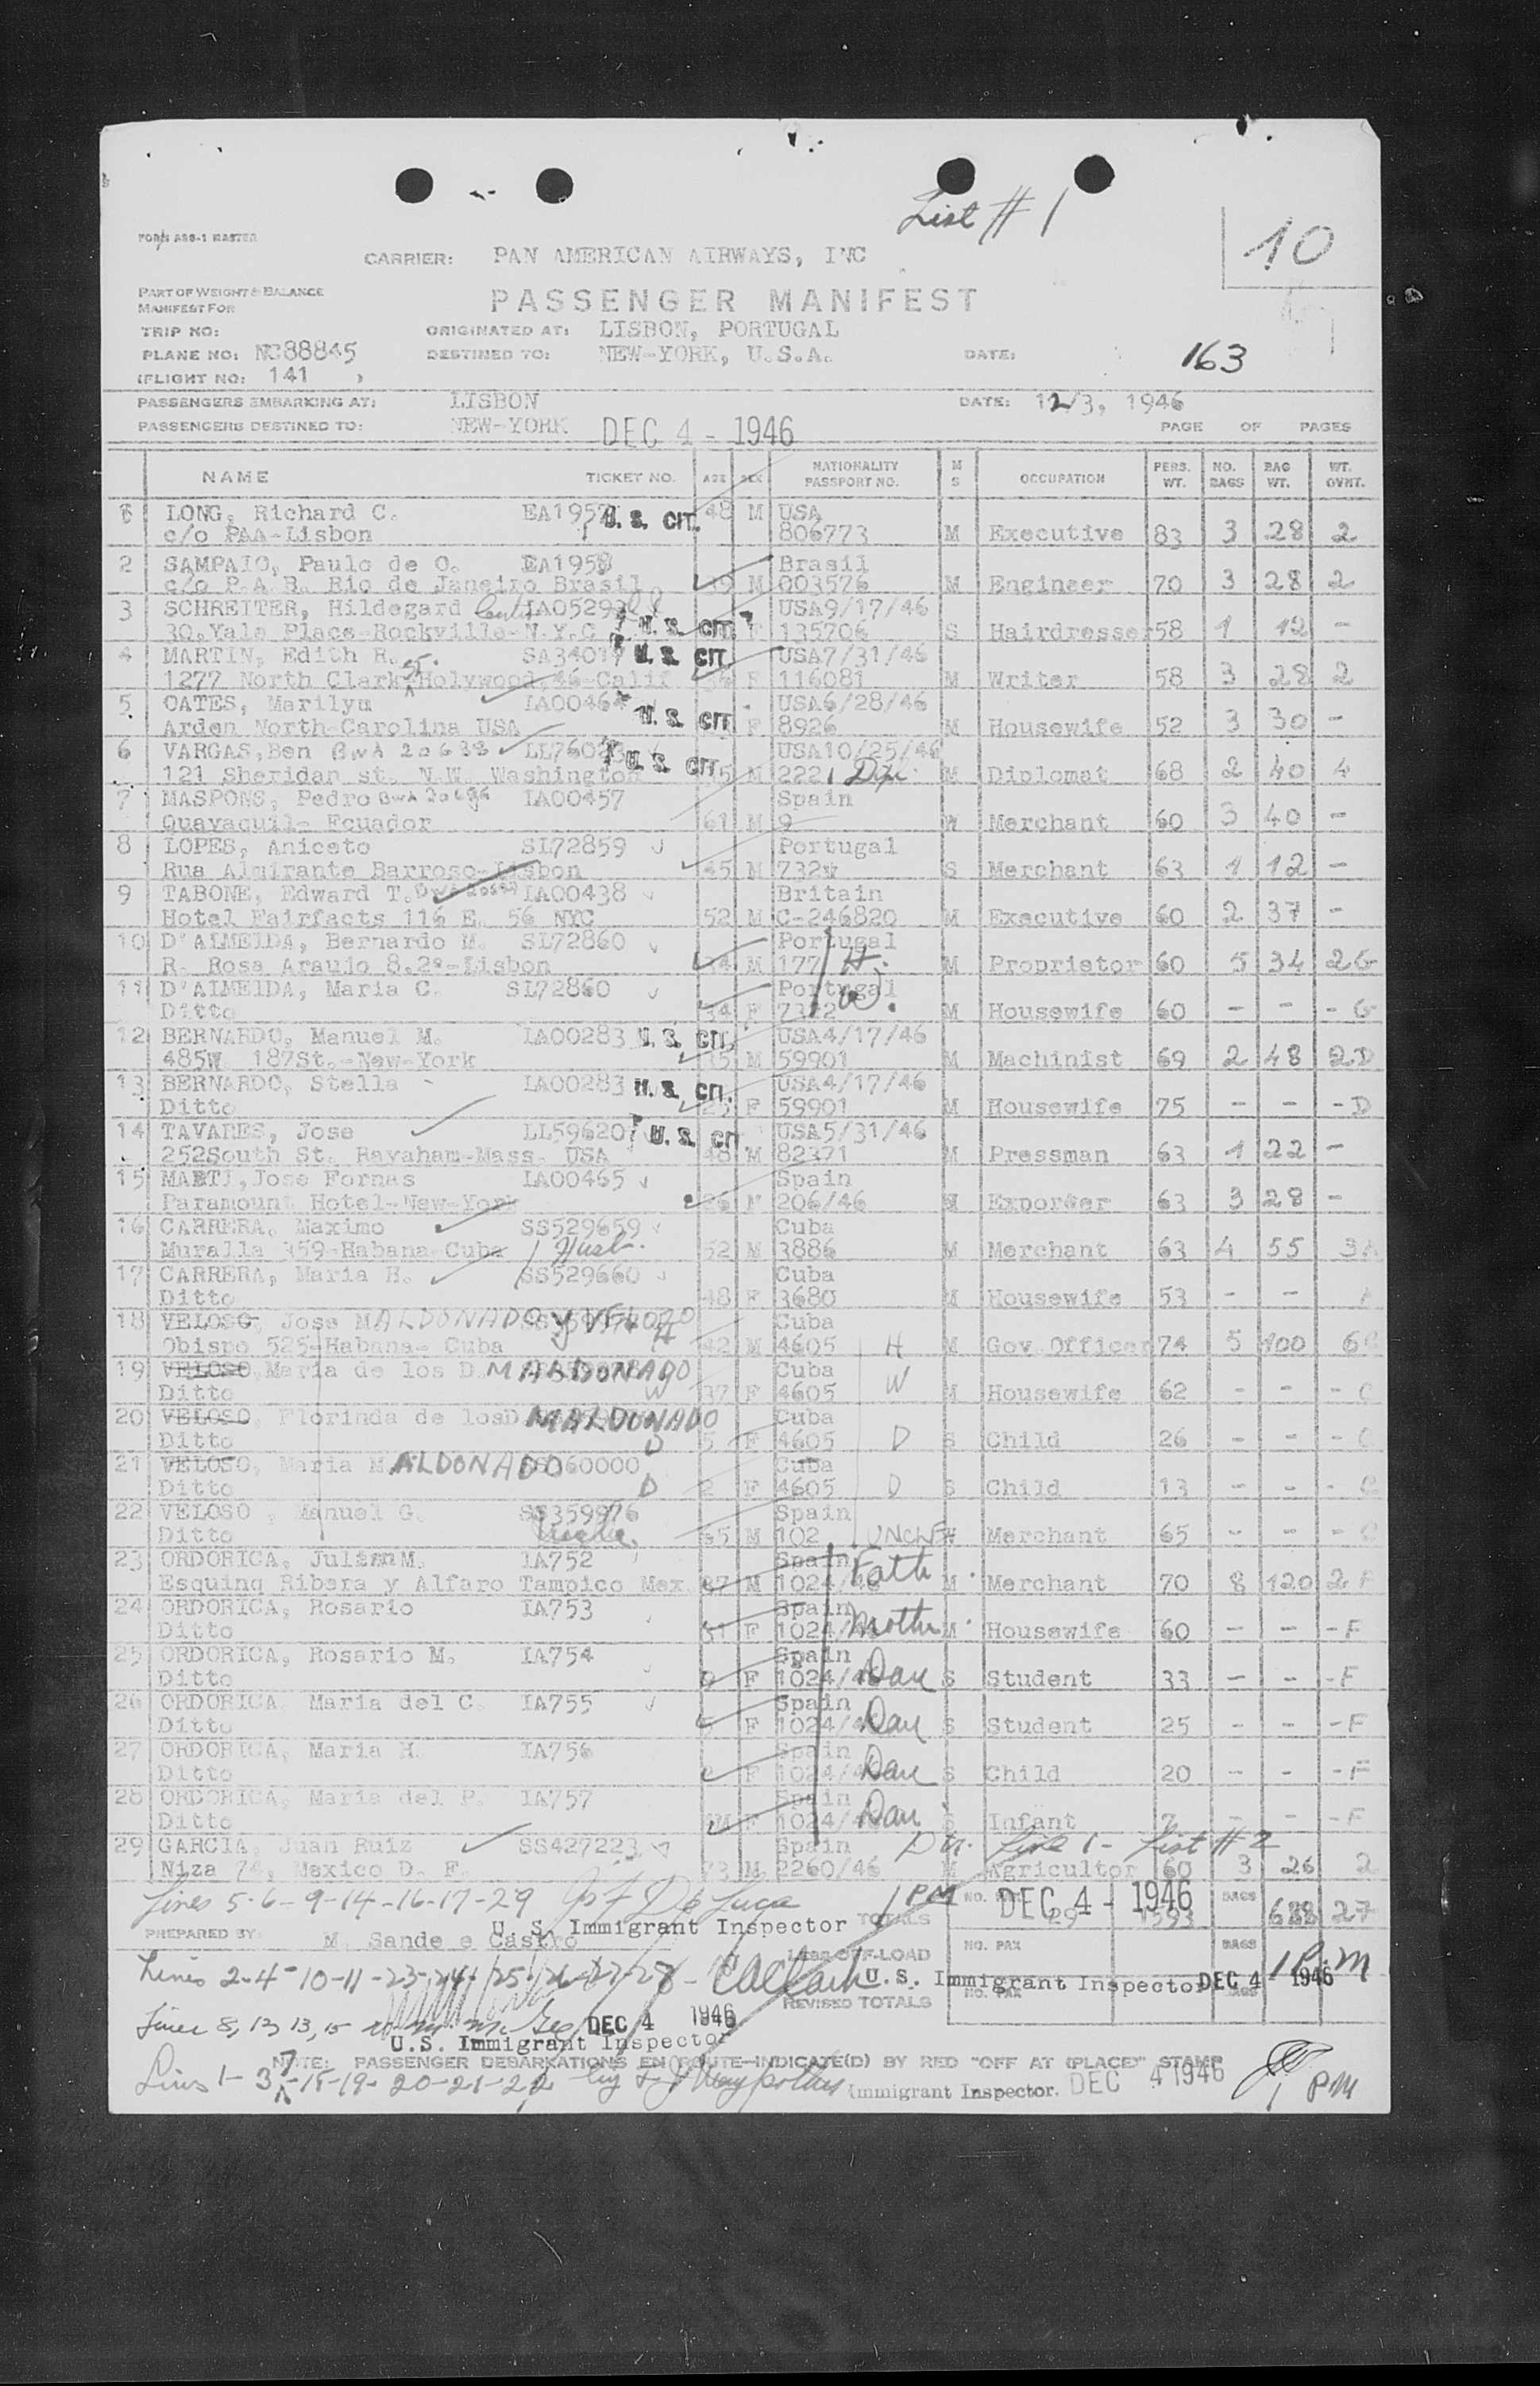 List # 1
10
FORM ASS-1 MASTER
CARRIER: PAN AMERICAN AIRWAYS, INC
PART OF WEIGHT & BALANCE
MANIFEST FOR
PASSENGER MANIFEST
TRIP NO: ORIGINATED AT: LISBON, PORTUGAL
PLANE NO: NC88845 DESTINED TO: NEW-YORK, U.S.A. DATE: 163
(FLIGHT NO: 141 )
PASSENGERS EMBARKING AT: LISBON DATE: 12/3, 1946
PASSENGERS DESTINED TO: NEW-YORK DEC 4 - 1946 PAGE OF PAGES
NAME TICKET NO. AGE SEX NATIONALITY PASSPORT NO. M S OCCUPATION PERS. WT. NO. BAGS BAG WT. WT. OVHT.
1 LONG, Richard C. EA1957 U. S. CIT. 48 M USA
c/o PAA-Lisbon 806773 M Executive 83 3 28 2
2 SAMPAIO, Paulo de O. EA1958 Brasil
c/o P.A.B. Rio de Janeiro Brasil 39 M 003576 M Engineer 70 3 28 2
3 SCHREITER, Hildegard IA05293 USA9/17/46
30, Yale Place-Rockville-N.Y.C U. S. CIT. F 135706 S Hairdresser 58 1 12 -
4 MARTIN, Edith R. SA34017 U. S. CIT. USA7/31/46
1277 North Clark St. Holywood, 46-Calif 36 F 116081 M Writer 58 3 28 2
5 OATES, Marilyn IA00464 USA6/28/46
Arden North-Carolina USA U. S. CIT F 8926 M Housewife 52 3 30 -
6 VARGAS, Ben BWA 20638 LL76023 U. S. CIT. USA10/25/46
121 Sheridan st. N.W. Washington 45 M 2221 Dip. M Diplomat 68 2 40 4
7 MASPONS, Pedro BWA 20636 IA00457 Spain
Quayaquil- Ecuador 61 M 9 W Merchant 60 3 40 -
8 LOPES, Aniceto SL72859 Portugal
Rua Almirante Barroso-Lisbon 45 M 732 S Merchant 63 1 12 -
9 TABONE, Edward T. IA00438 Britain
Hotel Fairfacts 116 E. 56 NYC 52 M C-246820 M Executive 60 2 37 -
10 D'ALMEIDA, Bernardo M. SL72860 Portugal
R. Rosa Araujo 8.2º-Lisbon 34 M 177 H. M Proprietor 60 5 34 2G
11 D'ALMEIDA, Maria C. SL72860 Portugal
Ditto 34 F 7322 W. M Housewife 60 - - - G
12 BERNARDO, Manuel M. IA00283 U. S. CIT. USA4/17/46
485W. 187St.-New-York 35 M 59901 M Machinist 69 2 48 2D
13 BERNARDO, Stella IA00283 U. S. CIT. USA4/17/46
Ditto 25 F 59901 M Housewife 75 - - - D
14 TAVARES, Jose LL59620 U. S. CIT USA5/31/46
252South St. Rayaham-Mass. USA 48 M 82371 M Pressman 63 1 22 -
15 MARTI, Jose Fornas IA00465 Spain
Paramount Hotel-New-York 26 M 206/46 M Exporter 63 3 28 -
16 CARRERA, Maximo SS529659 Cuba
Muralla 359-Habana-Cuba Husb. 52 M 3886 M Merchant 63 4 55 3A
17 CARRERA, Maria H. SS529660 Cuba
Ditto 48 F 3680 M Housewife 53 - - A
18 VELOSO, Jose MALDONADO y VELOZO Cuba
Obispo 525-Habana- Cuba H 42 M 4605 H M Gov. Officer 74 5 100 6C
19 VELOSO, Maria de los D. MALDONADO Cuba
Ditto W 37 F 4605 W M Housewife 62 - - - C
20 VELOSO, Florinda de losD MALDONADO Cuba
Ditto D 5 F 4605 D S Child 26 - - - C
21 VELOSO, Maria M. MALDONADO 060000 Cuba
Ditto D 2 F 4605 D S Child 13 - - - C
22 VELOSO , Manuel G. SS359976 Spain
Ditto Uncle. 65 M 102 UNCLE Merchant 65 - - - C
23 ORDORICA, Julian M. IA752 Spain
Esquinq Ribera y Alfaro Tampico Mex. 37 M 1024/46 Fath. M Merchant 70 8 120 2 F
24 ORDORICA, Rosario IA753 Spain
Ditto 31 F 1024/ Moth M Housewife 60 - - - F
25 ORDORICA, Rosario M. IA754 Spain
Ditto 9 F 1024/46 Dau S Student 33 - - - F
26 ORDORICA, Maria del C. IA755 Spain
Ditto F 1024/ Dau S Student 25 - - - F
27 ORDORICA, Maria H. IA756 Spain
Ditto F 1024/ Dau S Child 20 - - - F
28 ORDORICA, Maria del P. IA757 Spain
Ditto F 1024/ Dau S Infant 7 - - - F
29 GARCIA, Juan Ruiz SS427223 Spain Line 1 - List # 2
Niza 74, Mexico D. F. 73 M 2260/46 M Agricultor 60 3 26 2
Lines 5-6-9-14-16-17-29 Jos F De Luca 1 PM DEC 4 - 1946
U. S. Immigrant Inspector TOTALS NO. PAX 29 1593 BAGS 688 27
PREPARED BY: M. Sande e Castro
LESS OFF-LOAD NO. PAX BAGS 1 P.M
Lines 2-4-10-11-23-24-25-26-27-28- U. S. Immigrant Inspector DEC 4 1946
REVISED TOTALS NO. PAX BAGS
Lines 8, 12, 13, 15 DEC 4 1946
U.S. Immigrant Inspector
NOTE: PASSENGER DEBARKATIONS EN ROUTE-INDICATE(D) BY RED "OFF AT (PLACE)" STAMP
Lines 1-3-7-18-19-20-21-22 Immigrant Inspector. DEC 4 1946 1 PM